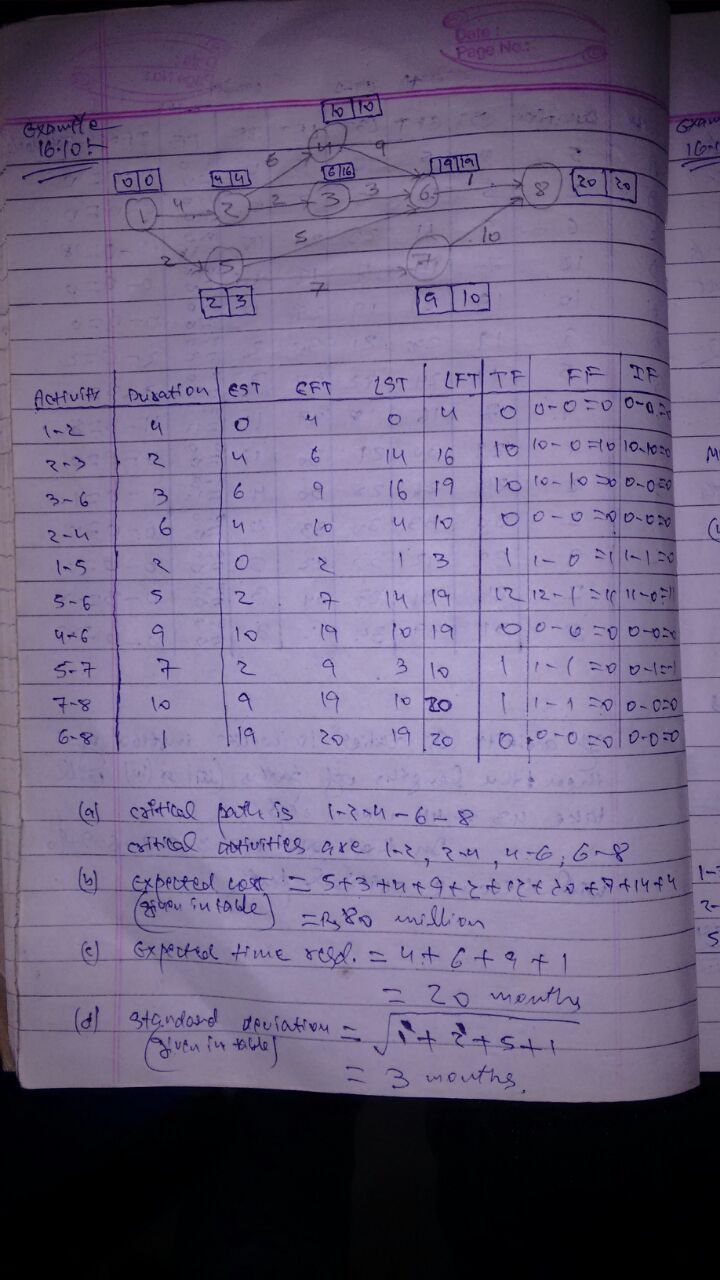 Date :
Page No.:
Example
16.10:
10 10
4
6
9
0 0
4 4
6 16
19 19
20 20
1
4
2
2
3
3
6
1
8
2
5
5
7
10
7
2 3
9 10
Activity Duration EST EFT LST LFT TF FF IF
1-2 4 0 4 0 4 0 0-0=0 0-0=0
2-3 2 4 6 14 16 10 10-0=10 10-10=0
3-6 3 6 9 16 19 10 10-10=0 0-0=0
2-4 6 4 10 4 10 0 0-0=0 0-0=0
1-5 2 0 2 1 3 1 1-0=1 1-1=0
5-6 5 2 7 14 19 12 12-1=11 11-0=11
4-6 9 10 19 10 19 0 0-0=0 0-0=0
5-7 7 2 9 3 10 1 1-1=0 0-1=-1
7-8 10 9 19 10 20 1 1-1=0 0-0=0
6-8 1 19 20 19 20 0 0-0=0 0-0=0
(a) critical path is 1-2-4-6-8
critical activities are 1-2, 2-4, 4-6, 6-8
(b) expected cost = 5+3+4+9+2+12+20+7+14+4
(given in table) = Rs 80 million
(c) expected time reqd. = 4+6+9+1
= 20 months
(d) standard deviation = √1+2+5+1
(given in table)
= 3 months.